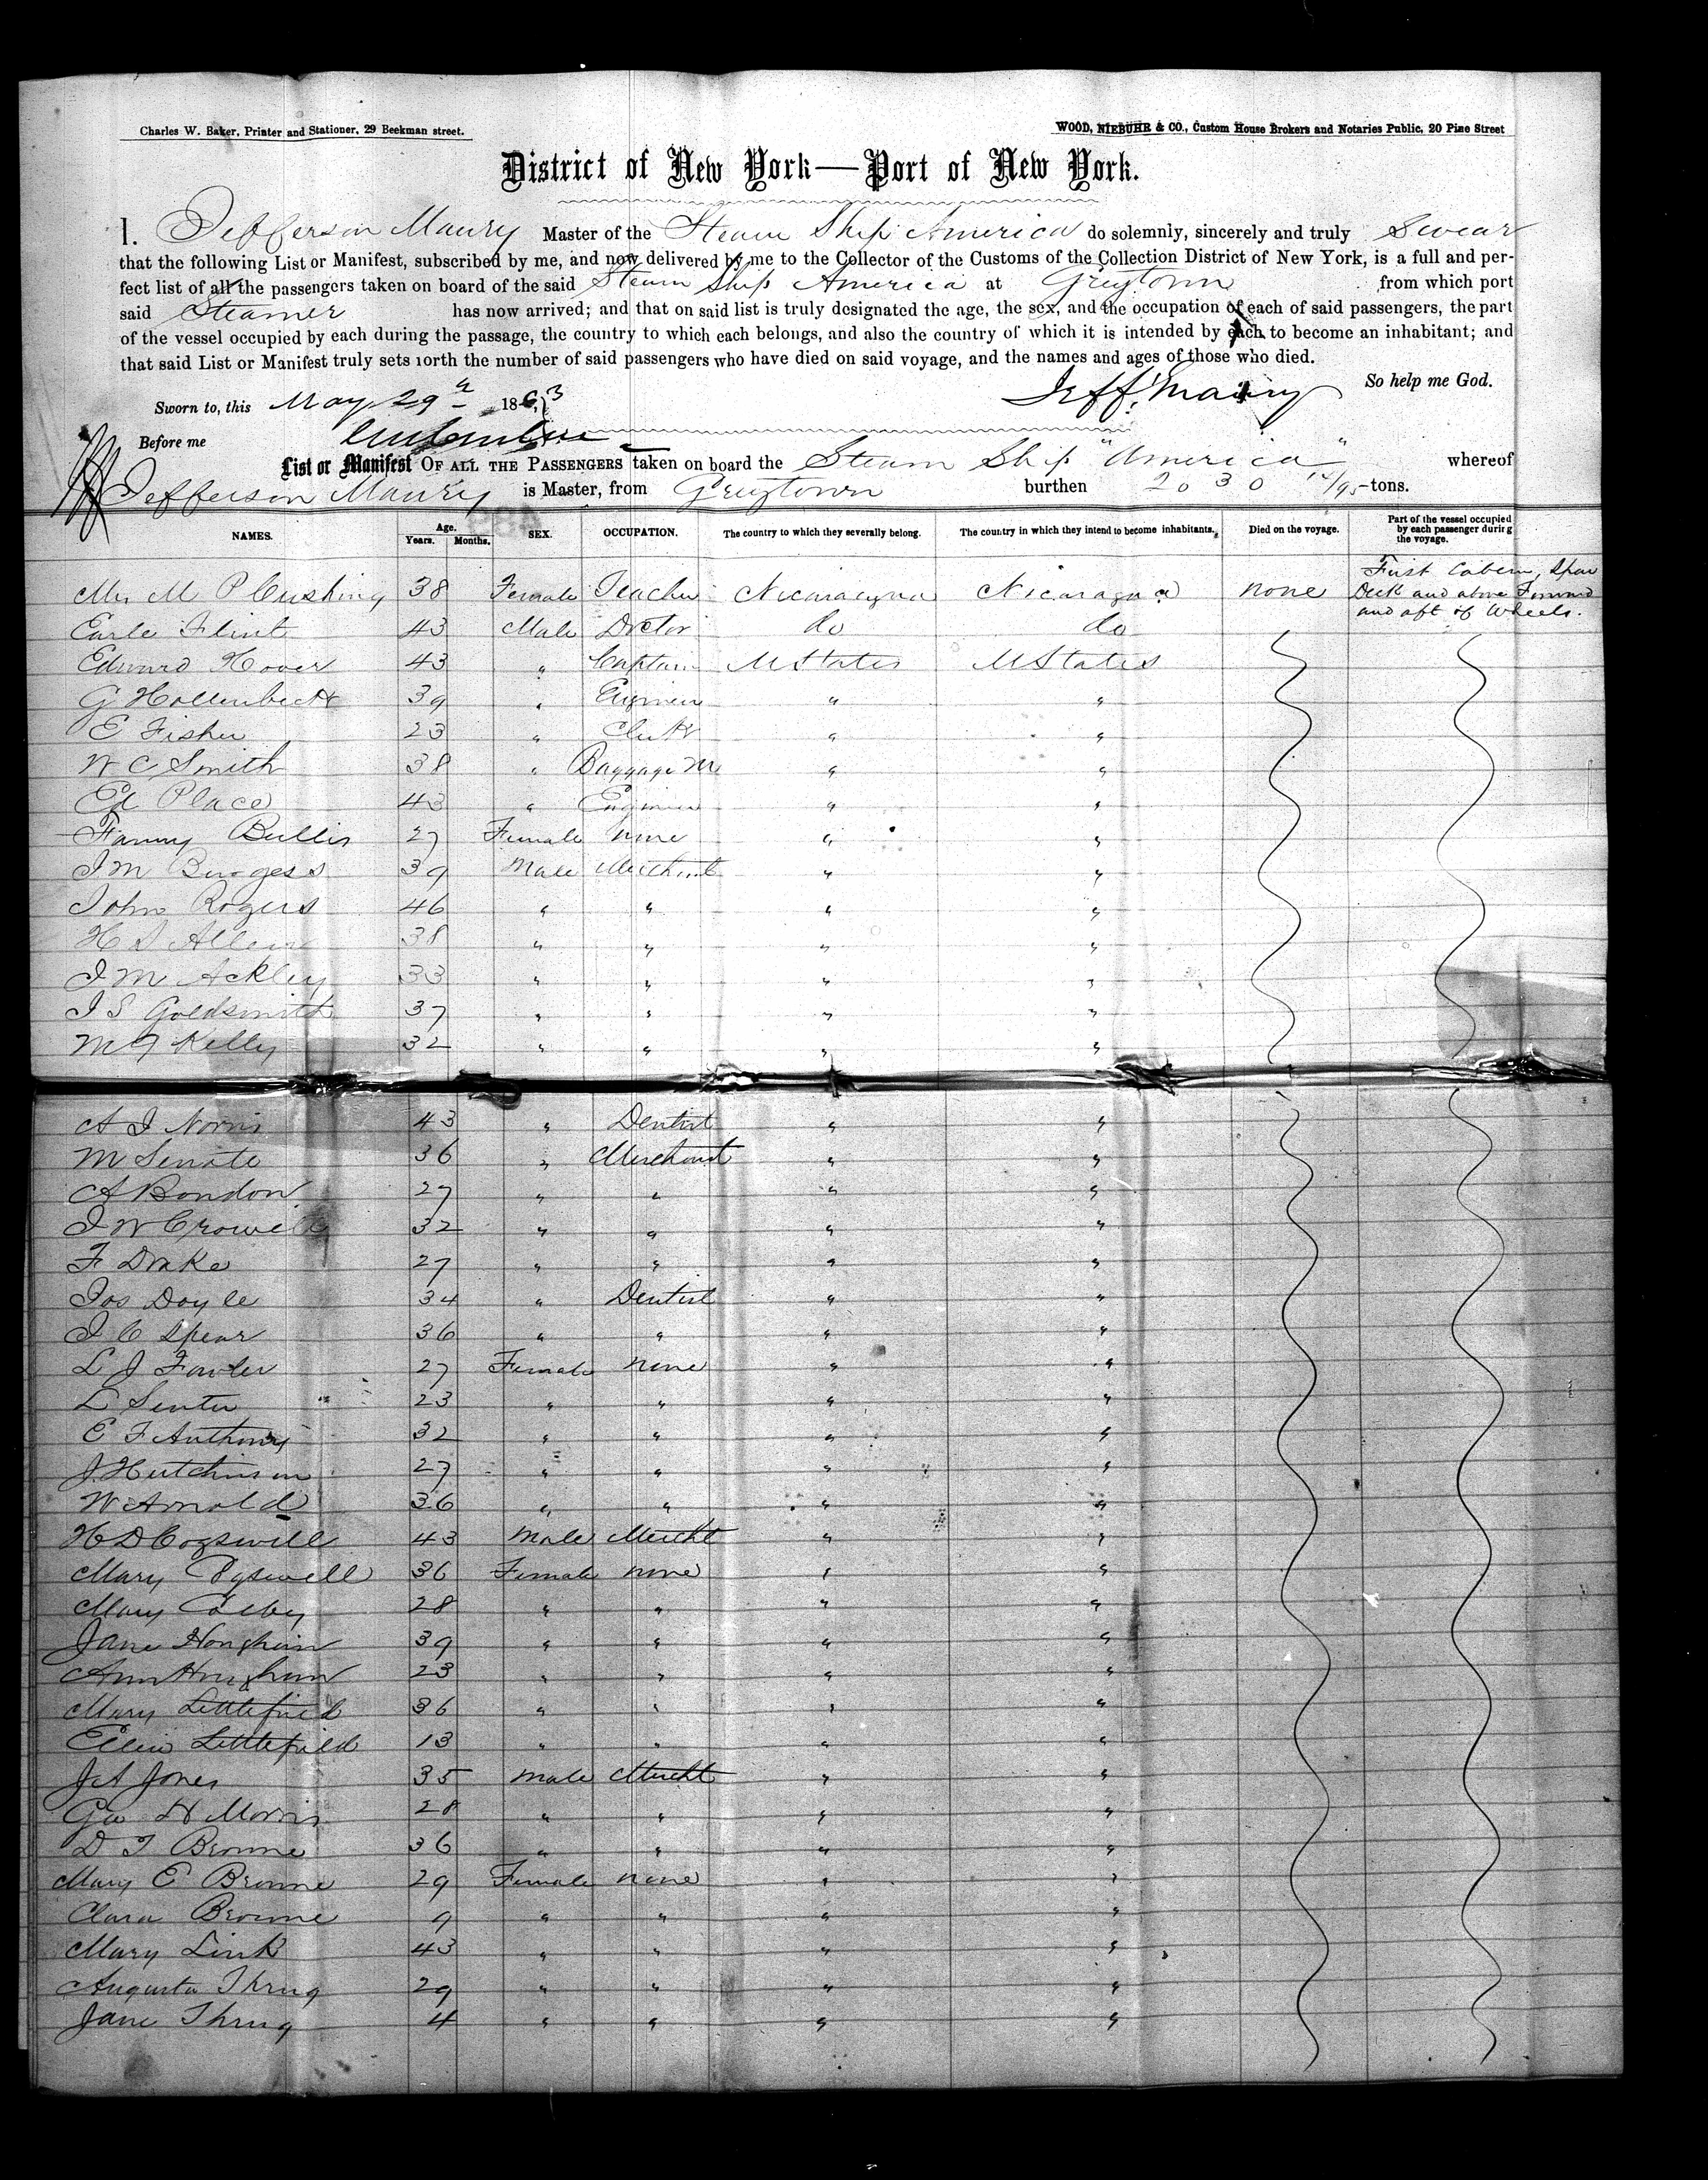 Charles W. Baker, Printer and Stationer, 29 Beekman street.
WOOD, NIEBUHR & CO., Custom House Brokers and Notaries Public, 20 Pine Street
District of New York—Port of New York.
I, Jefferson Maury Master of the Steam Ship America do solemnly, sincerely and truly Swear
that the following List or Manifest, subscribed by me, and now delivered by me to the Collector of the Customs of the Collection District of New York, is a full and per-
fect list of all the passengers taken on board of the said Steam Ship America at Greytown from which port
said Steamer has now arrived; and that on said list is truly designated the age, the sex, and the occupation of each of said passengers, the part
of the vessel occupied by each during the passage, the country to which each belongs, and also the country of which it is intended by each to become an inhabitant; and
that said List or Manifest truly sets forth the number of said passengers who have died on said voyage, and the names and ages of those who died.
So help me God.
Jeff. Maury
Sworn to, this May 29th 1863
Before me
List or Manifest OF ALL THE PASSENGERS taken on board the Steam Ship "America" whereof
Jefferson Maury is Master, from Greytown burthen 2030 /95 tons.
NAMES. Age. Years. Months. SEX. OCCUPATION. The country to which they severally belong. The country in which they intend to become inhabitants. Died on the voyage. Part of the vessel occupied by each passenger during the voyage.
First Cabin, Spar
Mrs M P Cushing 38 Female Teacher Nicaragua Nicaragua none Deck and above Forward
and aft of Wheels.
Earle Flint 43 Male Doctor do do
Edward Hover 43 " Captain U States U States
G Hollenbeck 39 " Engineer " "
E Fisher 23 " Clerk " "
W C Smith 38 " Baggage " "
Ed Place 43 " Engineer " "
Fanny Bullis 27 Female none " "
J M Burgess 39 Male Merchant " "
John Rogers 46 " " " "
H Allen 38 " " " "
J M Ackley 33 " " " "
I S Goldsmith 37 " " " "
M Kelly 32 " " " "
A J Norris 43 " Dentist " "
M Senate 36 " Merchant " "
A Bondon 27 " " " "
J W Crowell 32 " " " "
F Drake 27 " " " "
Jos Doyle 34 " Dentist " "
J C Spear 36 " " " "
L J Fowler 27 Female none " "
L Senter 23 " " " "
E F Anthony 32 " " " "
J. Hutchinson 27 " " " "
W Arnold 36 " " " "
H D Cogswell 43 Male Mercht " "
Mary Cogswell 36 Female none " "
Mary Colby 28 " " " "
Jane 39 " " " "
Ann 23 " " " "
Mary Littlefield 36 " " " "
Ellen Littlefield 13 " " " "
J A Jones 35 Male Mercht " "
Geo H Morris 28 " " " "
D T Browne 36 " " " "
Mary E Browne 29 Female none " "
Clara Browne 9 " " " "
Mary Link 43 " " " "
Augusta Thrug 29 " " " "
Jane Thrug 4 " " " "